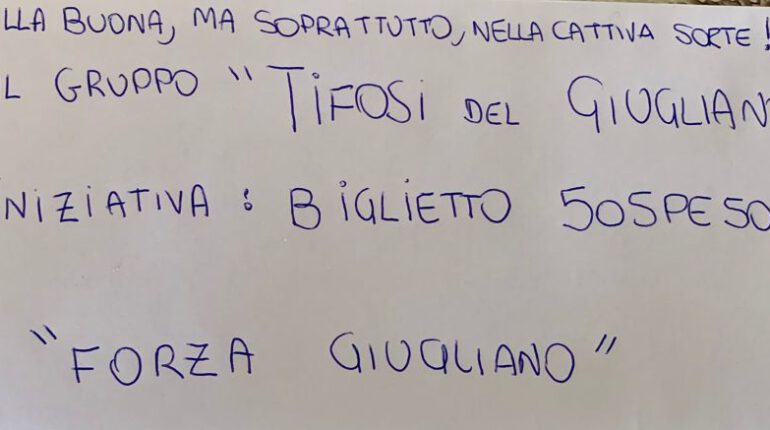 LLA BUONA, MA SOPRATTUTTO, NELLA CATTIVA SORTE !
L GRUPPO "TIFOSI DEL GIUGLIAN
NIZIATIVA : BIGLIETTO SOSPESO
"FORZA GIUGLIANO"